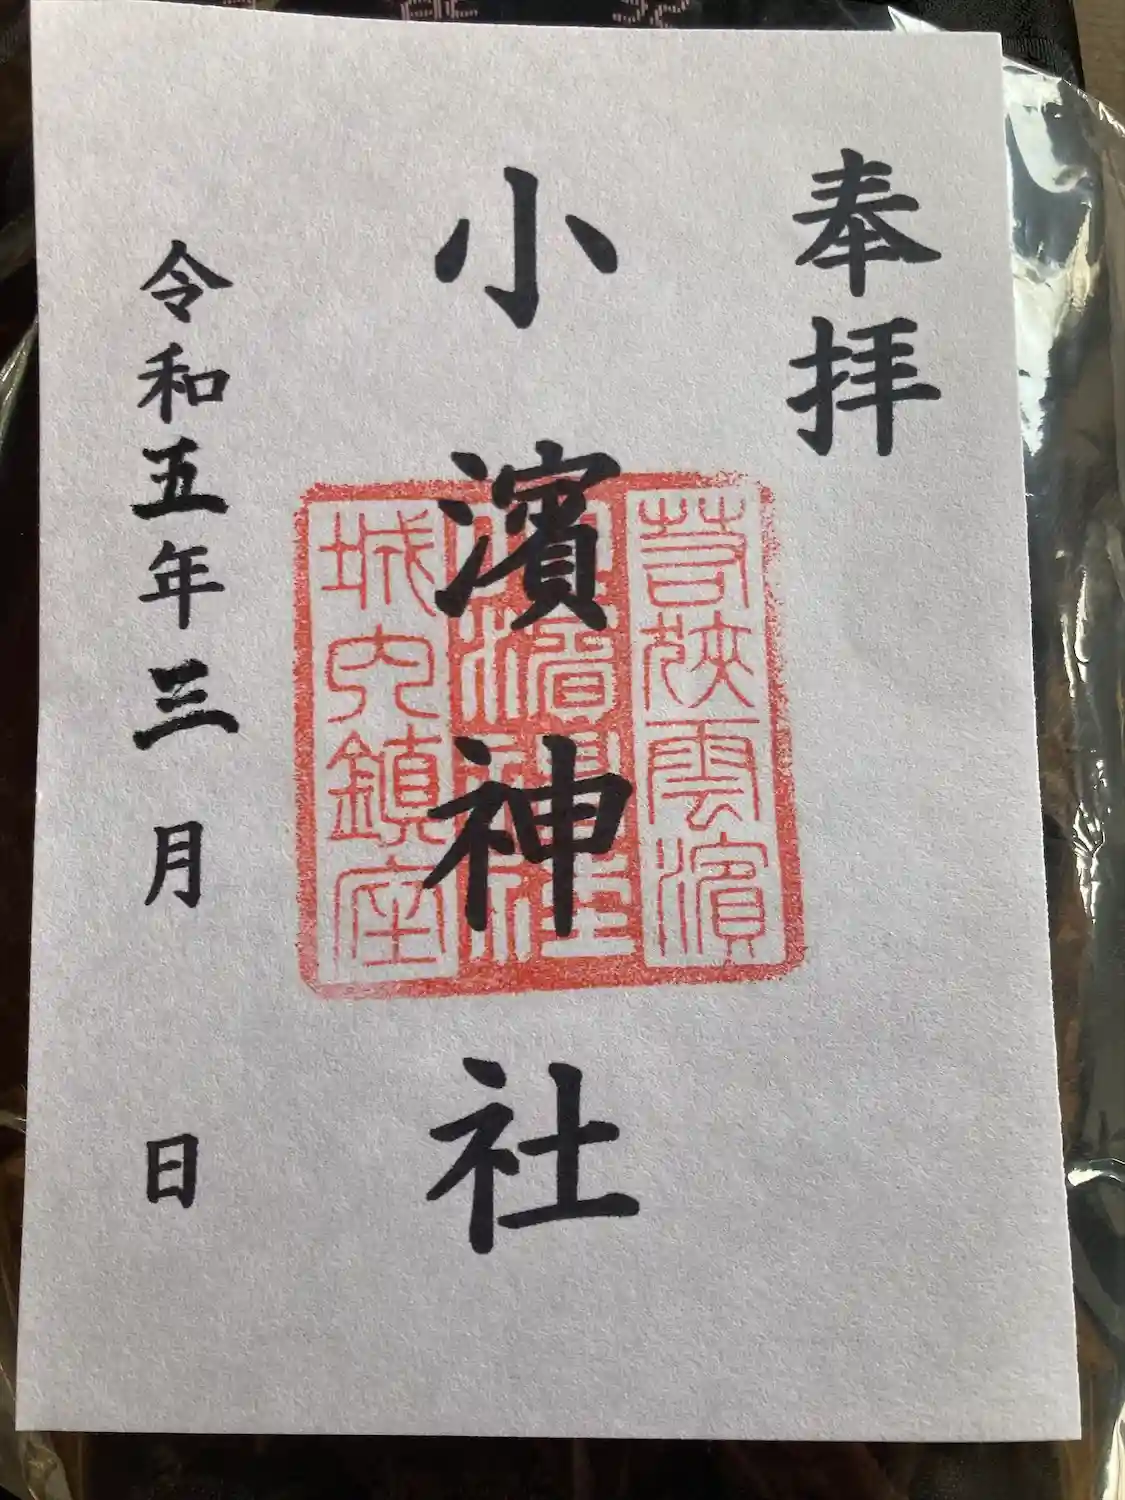 奉拝
小濱神社
若狹雲濱
小濱神社
城内鎮座
令和五年三月 日